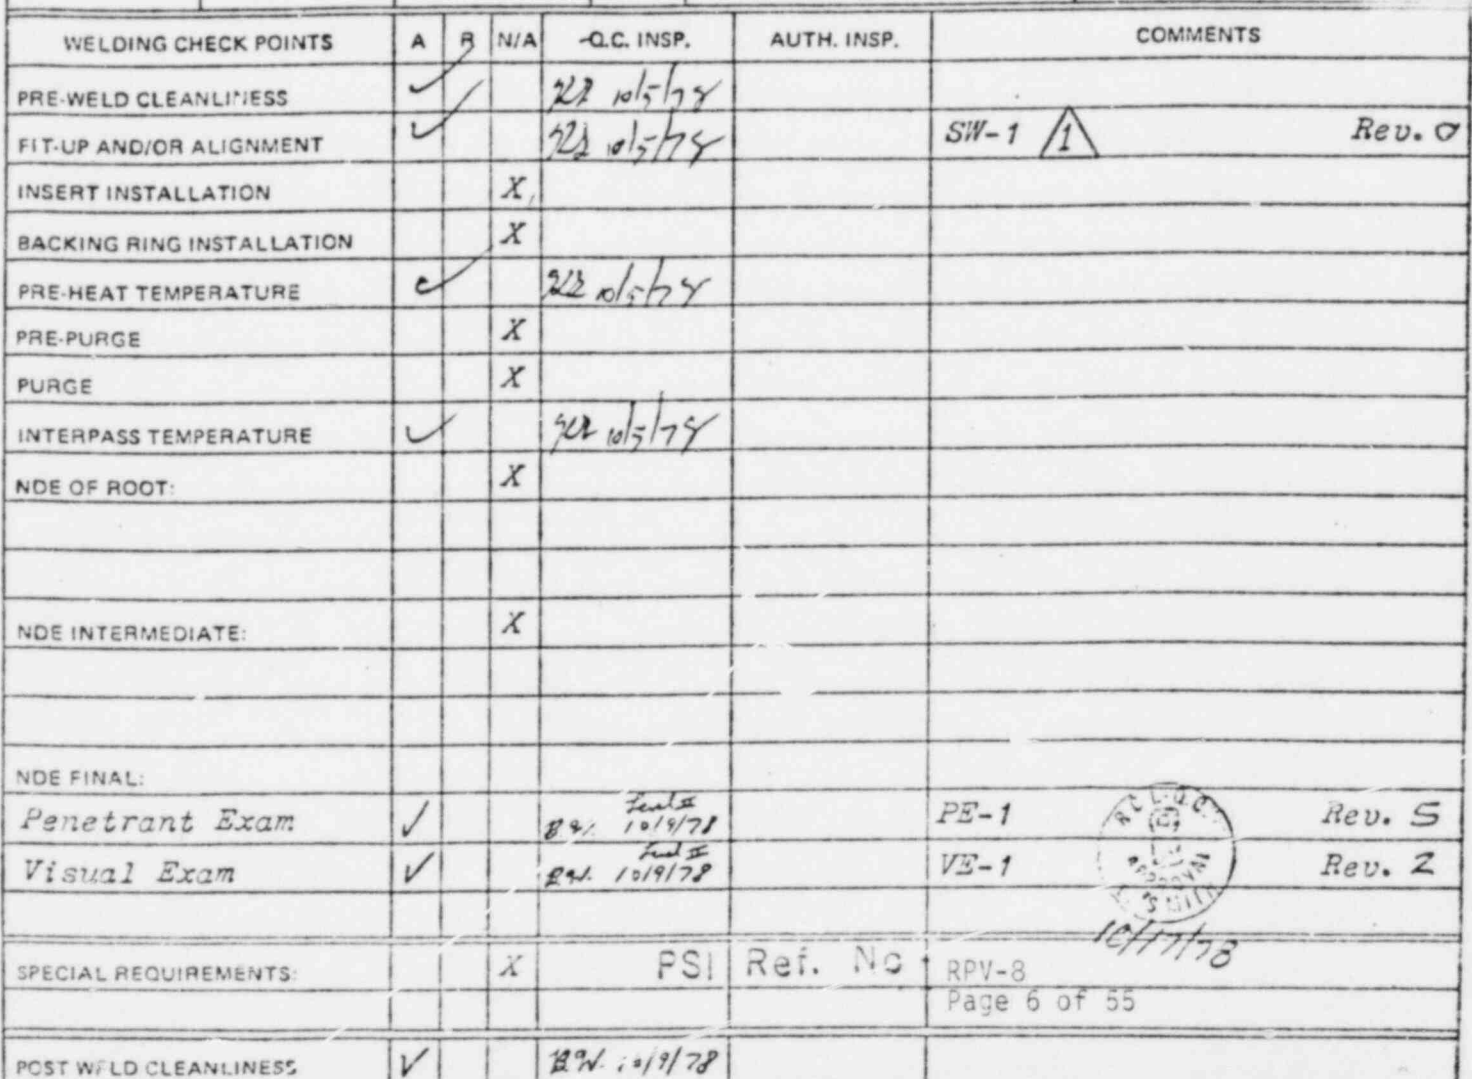 WELDING CHECK POINTS A R N/A Q.C. INSP. AUTH. INSP. COMMENTS
PRE-WELD CLEANLINESS ✓ 10/5/78
FIT-UP AND/OR ALIGNMENT ✓ 10/5/78 SW-1 1 Rev. 0
INSERT INSTALLATION X
BACKING RING INSTALLATION X
PRE-HEAT TEMPERATURE ✓ 10/5/78
PRE-PURGE X
PURGE X
INTERPASS TEMPERATURE ✓ 10/5/78
NDE OF ROOT: X
NDE INTERMEDIATE: X
NDE FINAL:
Level II
Penetrant Exam ✓ 10/9/78 PE-1 Rev. 5
Level II
Visual Exam ✓ 10/9/78 VE-1 Rev. 2
APPROVAL
10/17/78
SPECIAL REQUIREMENTS: X PSI Ref. No RPV-8
Page 6 of 55
POST WELD CLEANLINESS ✓ 10/9/78